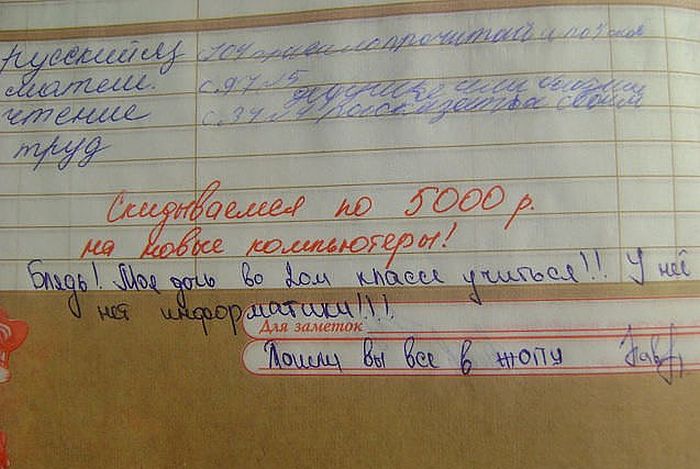 русский яз с.104 правило прочитай и по
матем. с.97 № 5
чтение с.34 № 4 рассказ
труд
Скидываемся по 5000 р.
на новые компьютеры!
Блядь! Моя дочь во 2ом классе учиться!!! У неё
нет информатики!!!!
Для заметок
Пошли вы все в жопу